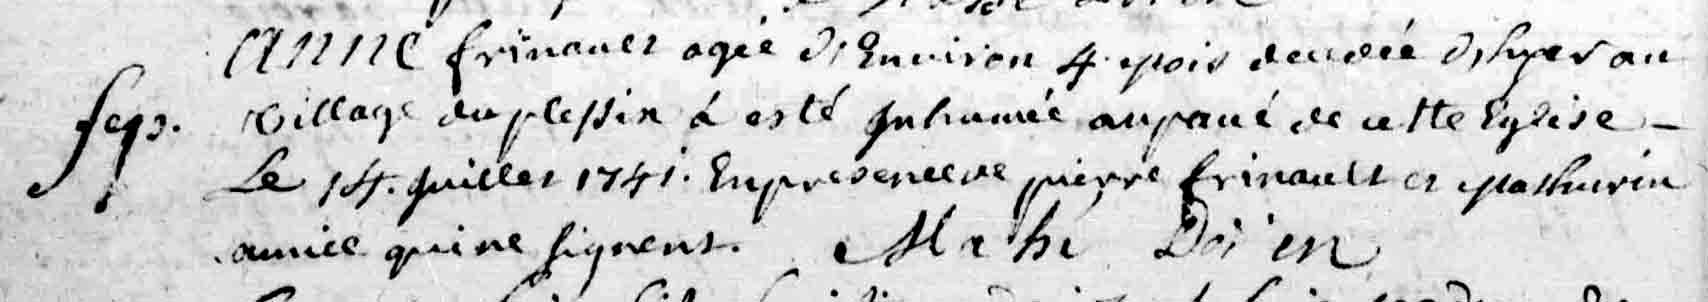 ANNE frinault agée d'Environ 4. mois decedée d'hyer au
Sep. village du plessix à esté Inhumée au pavé de cette Eglise –
Le 14. Juillet 1741. En presence de pierre frinault et Mathurin
qui ne signent. Mahé Doïen